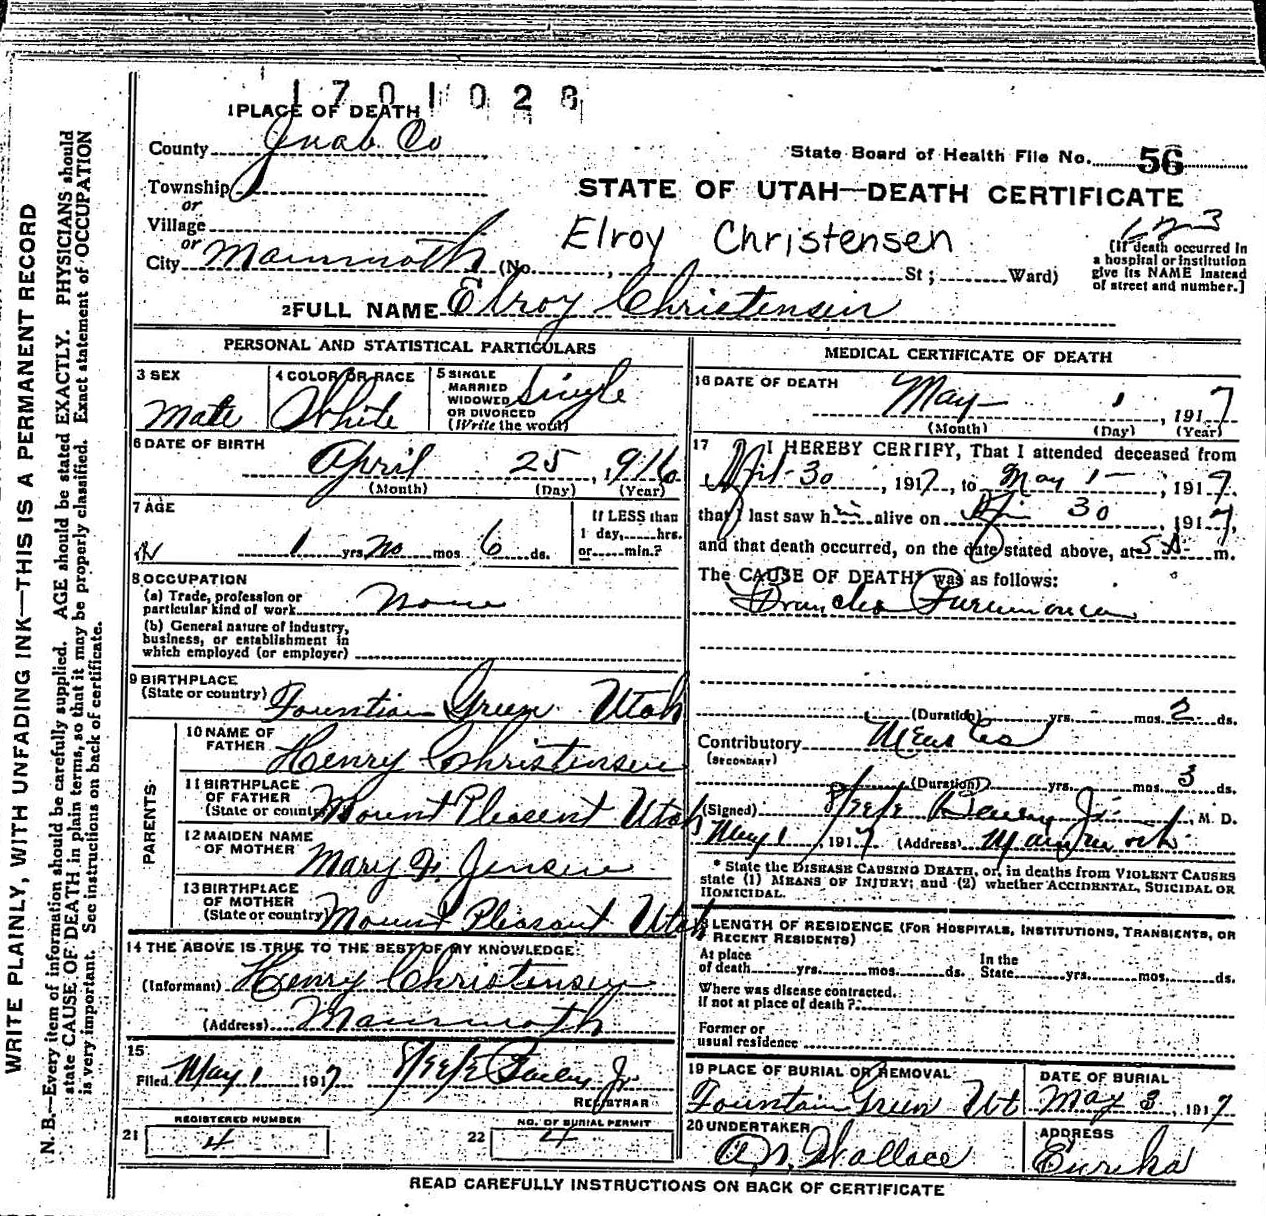 1701028
1 PLACE OF DEATH
County Juab Co
State Board of Health File No. 56
Township
or
STATE OF UTAH—DEATH CERTIFICATE
Village
or
Elroy Christensen
City Mammoth (No. , St; Ward)
(If death occurred in
a hospital or institution
give its NAME instead
of street and number.]
2 FULL NAME Elroy Christensen
PERSONAL AND STATISTICAL PARTICULARS
3 SEX
Male
4 COLOR OR RACE
White
5 SINGLE
MARRIED
WIDOWED
OR DIVORCED
(Write the word)
Single
6 DATE OF BIRTH
April 25, 916
(Month) (Day) (Year)
7 AGE
1 yrs. no mos. 6 ds.
If LESS than
1 day, hrs.
or min.?
8 OCCUPATION
(a) Trade, profession or
particular kind of work None
(b) General nature of industry,
business, or establishment in
which employed (or employer)
9 BIRTHPLACE
(State or country) Fountian Green Utah
PARENTS
10 NAME OF
FATHER Henry Christensen
11 BIRTHPLACE
OF FATHER
(State or country) Mount Pleasent Utah
12 MAIDEN NAME
OF MOTHER Mary F. Jensen
13 BIRTHPLACE
OF MOTHER
(State or country) Mount Pleasant Utah
14 THE ABOVE IS TRUE TO THE BEST OF MY KNOWLEDGE
(Informant) Henry Christensen
(Address) Mammoth
15
Filed May 1 1917 Bailey Jr.
REGISTRAR
REGISTERED NUMBER
21 4
NO. OF BURIAL PERMIT
22 4
MEDICAL CERTIFICATE OF DEATH
16 DATE OF DEATH
May 1, 1917
(Month) (Day) (Year)
17 I HEREBY CERTIFY, That I attended deceased from
April 30, 1917, to May 1, 1917,
that I last saw him alive on Apr 30, 1917,
and that death occurred, on the date stated above, at 5 A m.
The CAUSE OF DEATH* was as follows:
Broncho Pneumonia
(Duration) yrs. mos. 2 ds.
Contributory Measles
(SECONDARY)
(Duration) yrs. mos. 3 ds.
(Signed) Bailey Jr. M. D.
May 1 1917 (Address) Mammoth
* State the DISEASE CAUSING DEATH, or, in deaths from VIOLENT CAUSES
state (1) MEANS OF INJURY; and (2) whether ACCIDENTAL, SUICIDAL OR
HOMICIDAL.
18 LENGTH OF RESIDENCE (FOR HOSPITALS, INSTITUTIONS, TRANSIENTS, OR
RECENT RESIDENTS)
At place
of death yrs. mos. ds.
In the
State yrs. mos. ds.
Where was disease contracted,
if not at place of death?
Former or
usual residence
19 PLACE OF BURIAL OR REMOVAL
Fountain Green Ut
DATE OF BURIAL
May 3, 1917
20 UNDERTAKER
A. N. Wallace
ADDRESS
Eureka
READ CAREFULLY INSTRUCTIONS ON BACK OF CERTIFICATE
WRITE PLAINLY, WITH UNFADING INK—THIS IS A PERMANENT RECORD
N. B.—Every item of information should be carefully supplied. AGE should be stated EXACTLY. PHYSICIANS should
state CAUSE OF DEATH in plain terms, so that it may be properly classified. Exact statement of OCCUPATION
is very important. See instructions on back of certificate.